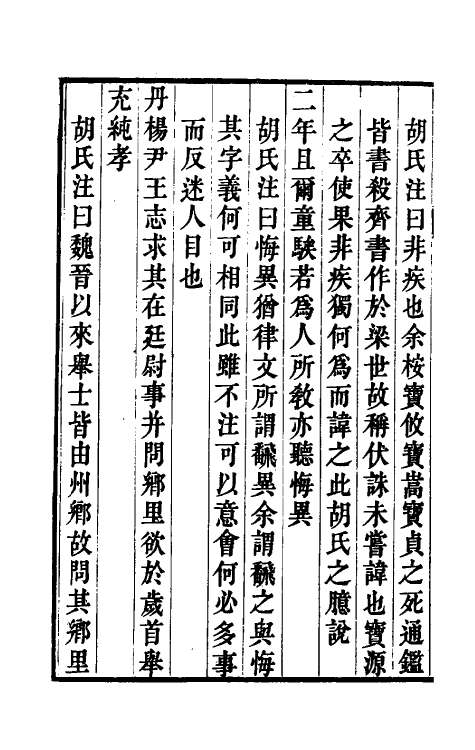 胡氏注曰非疾也余桉寶攸寶嵩寶貞之死通鑑
皆書殺齊書作於梁世故稱伏誅未嘗諱也寶源
之卒使果非疾獨何爲而諱之此胡氏之臆說
二年且爾童騃若爲人所敎亦聽悔異
胡氏注曰悔異猶律文所謂飜異余謂飜之與悔
其字義何可相同此雖不注可以意會何必多事
而反迷人目也
丹楊尹王志求其在廷尉事并問鄉里欲於歲首舉
充純孝
胡氏注曰魏晉以來舉士皆由州鄉故問其鄉里